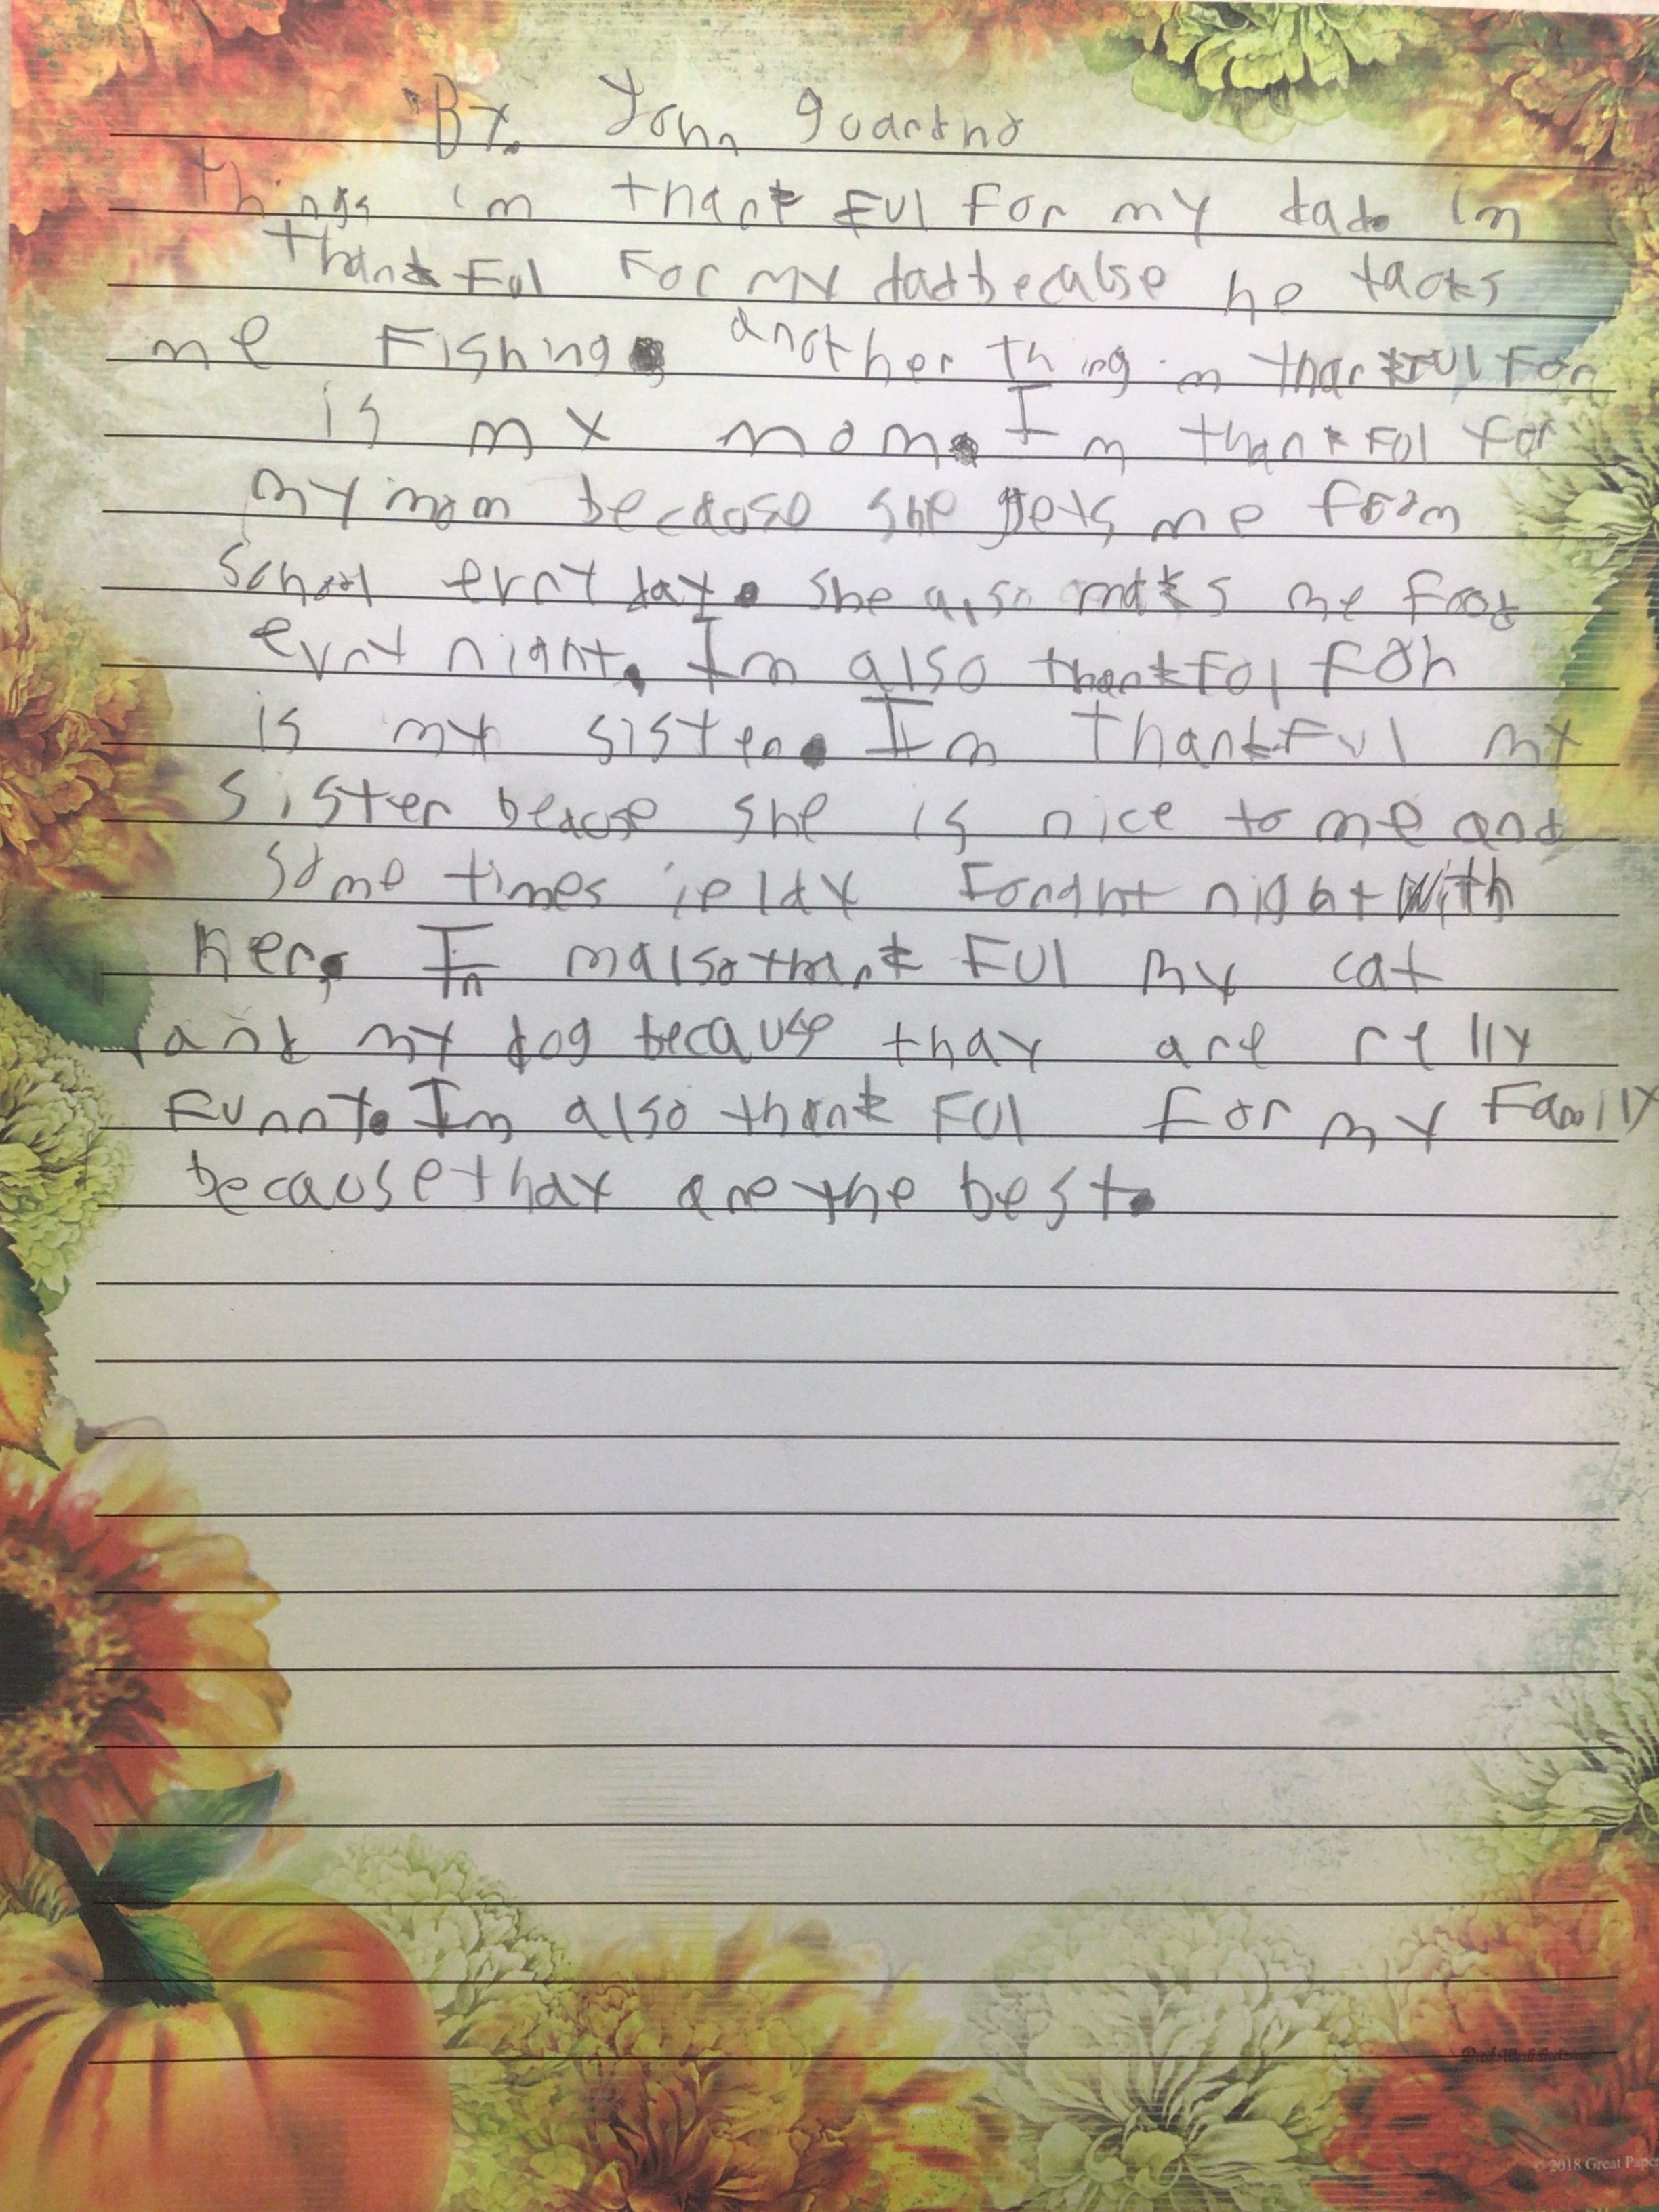 By. John guardno
things im thankful for my dad. im
thankful for my dad becalse he tacks
me Fishing. another thing im thankful for
is my mom. Im thankful for
my mom becaose she gets me form
school evry day. she also maks me food
evry night. Im also thankfol for
is my sister. Im thankful my
sister beacuse she is nice to me and
some times
her. Im malso thank Ful my cat
and my dog because thay are relly
Funny. Im also thank Ful for my Family
because thay are the best.
© 2018 Great Paper